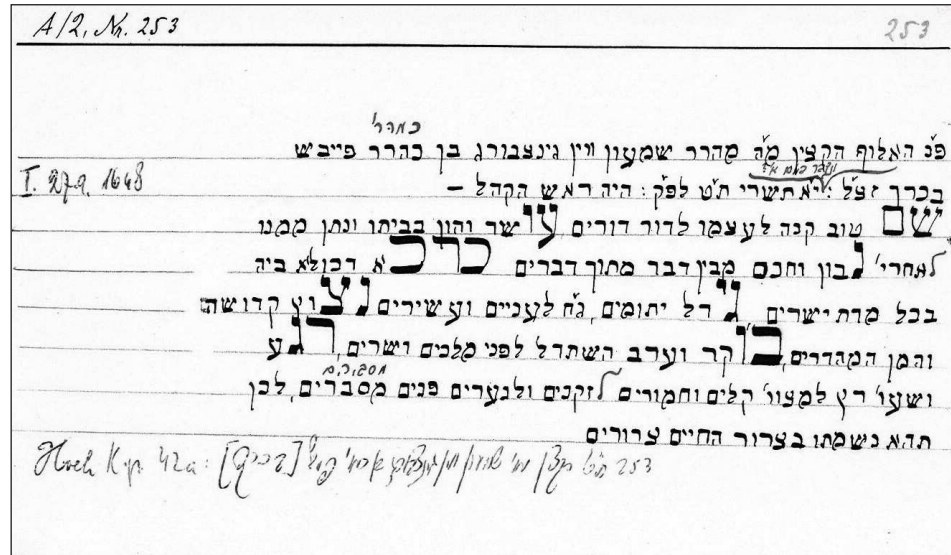 A/2, Nr. 253
253
כמהרר'
פ"נ האלוף הקצין מ"ה מהרר שמעון ווין גינצבורג בן כהרר פייבש
ונקבר
T. 27.9. 1648
בכרך זצ"ל: י"א תשרי ת"ט לפ"ק: היה ראש הקהל –
שם טוב קנה לעצמו לדור דורים, עושר והון בביתו ונתן ממנו
לאחרי' נבון וחכם מבין דבר מתוך דברים כרכא דכולא ביה
בכל מדת ישרים גידל יתומים, ג"ח לעניים ועשירים נצוץ קדושה
והמן המהדרים, בוקר וערב השתדל לפני מלכים ושרים, רגע
ושעו' רץ למצוו' קלים וחמורים לזקנים ולנערים פנים מסברים, לכן
תהא נשמתו בצרור החיים צרורים
Hock K.p. 42a:
253